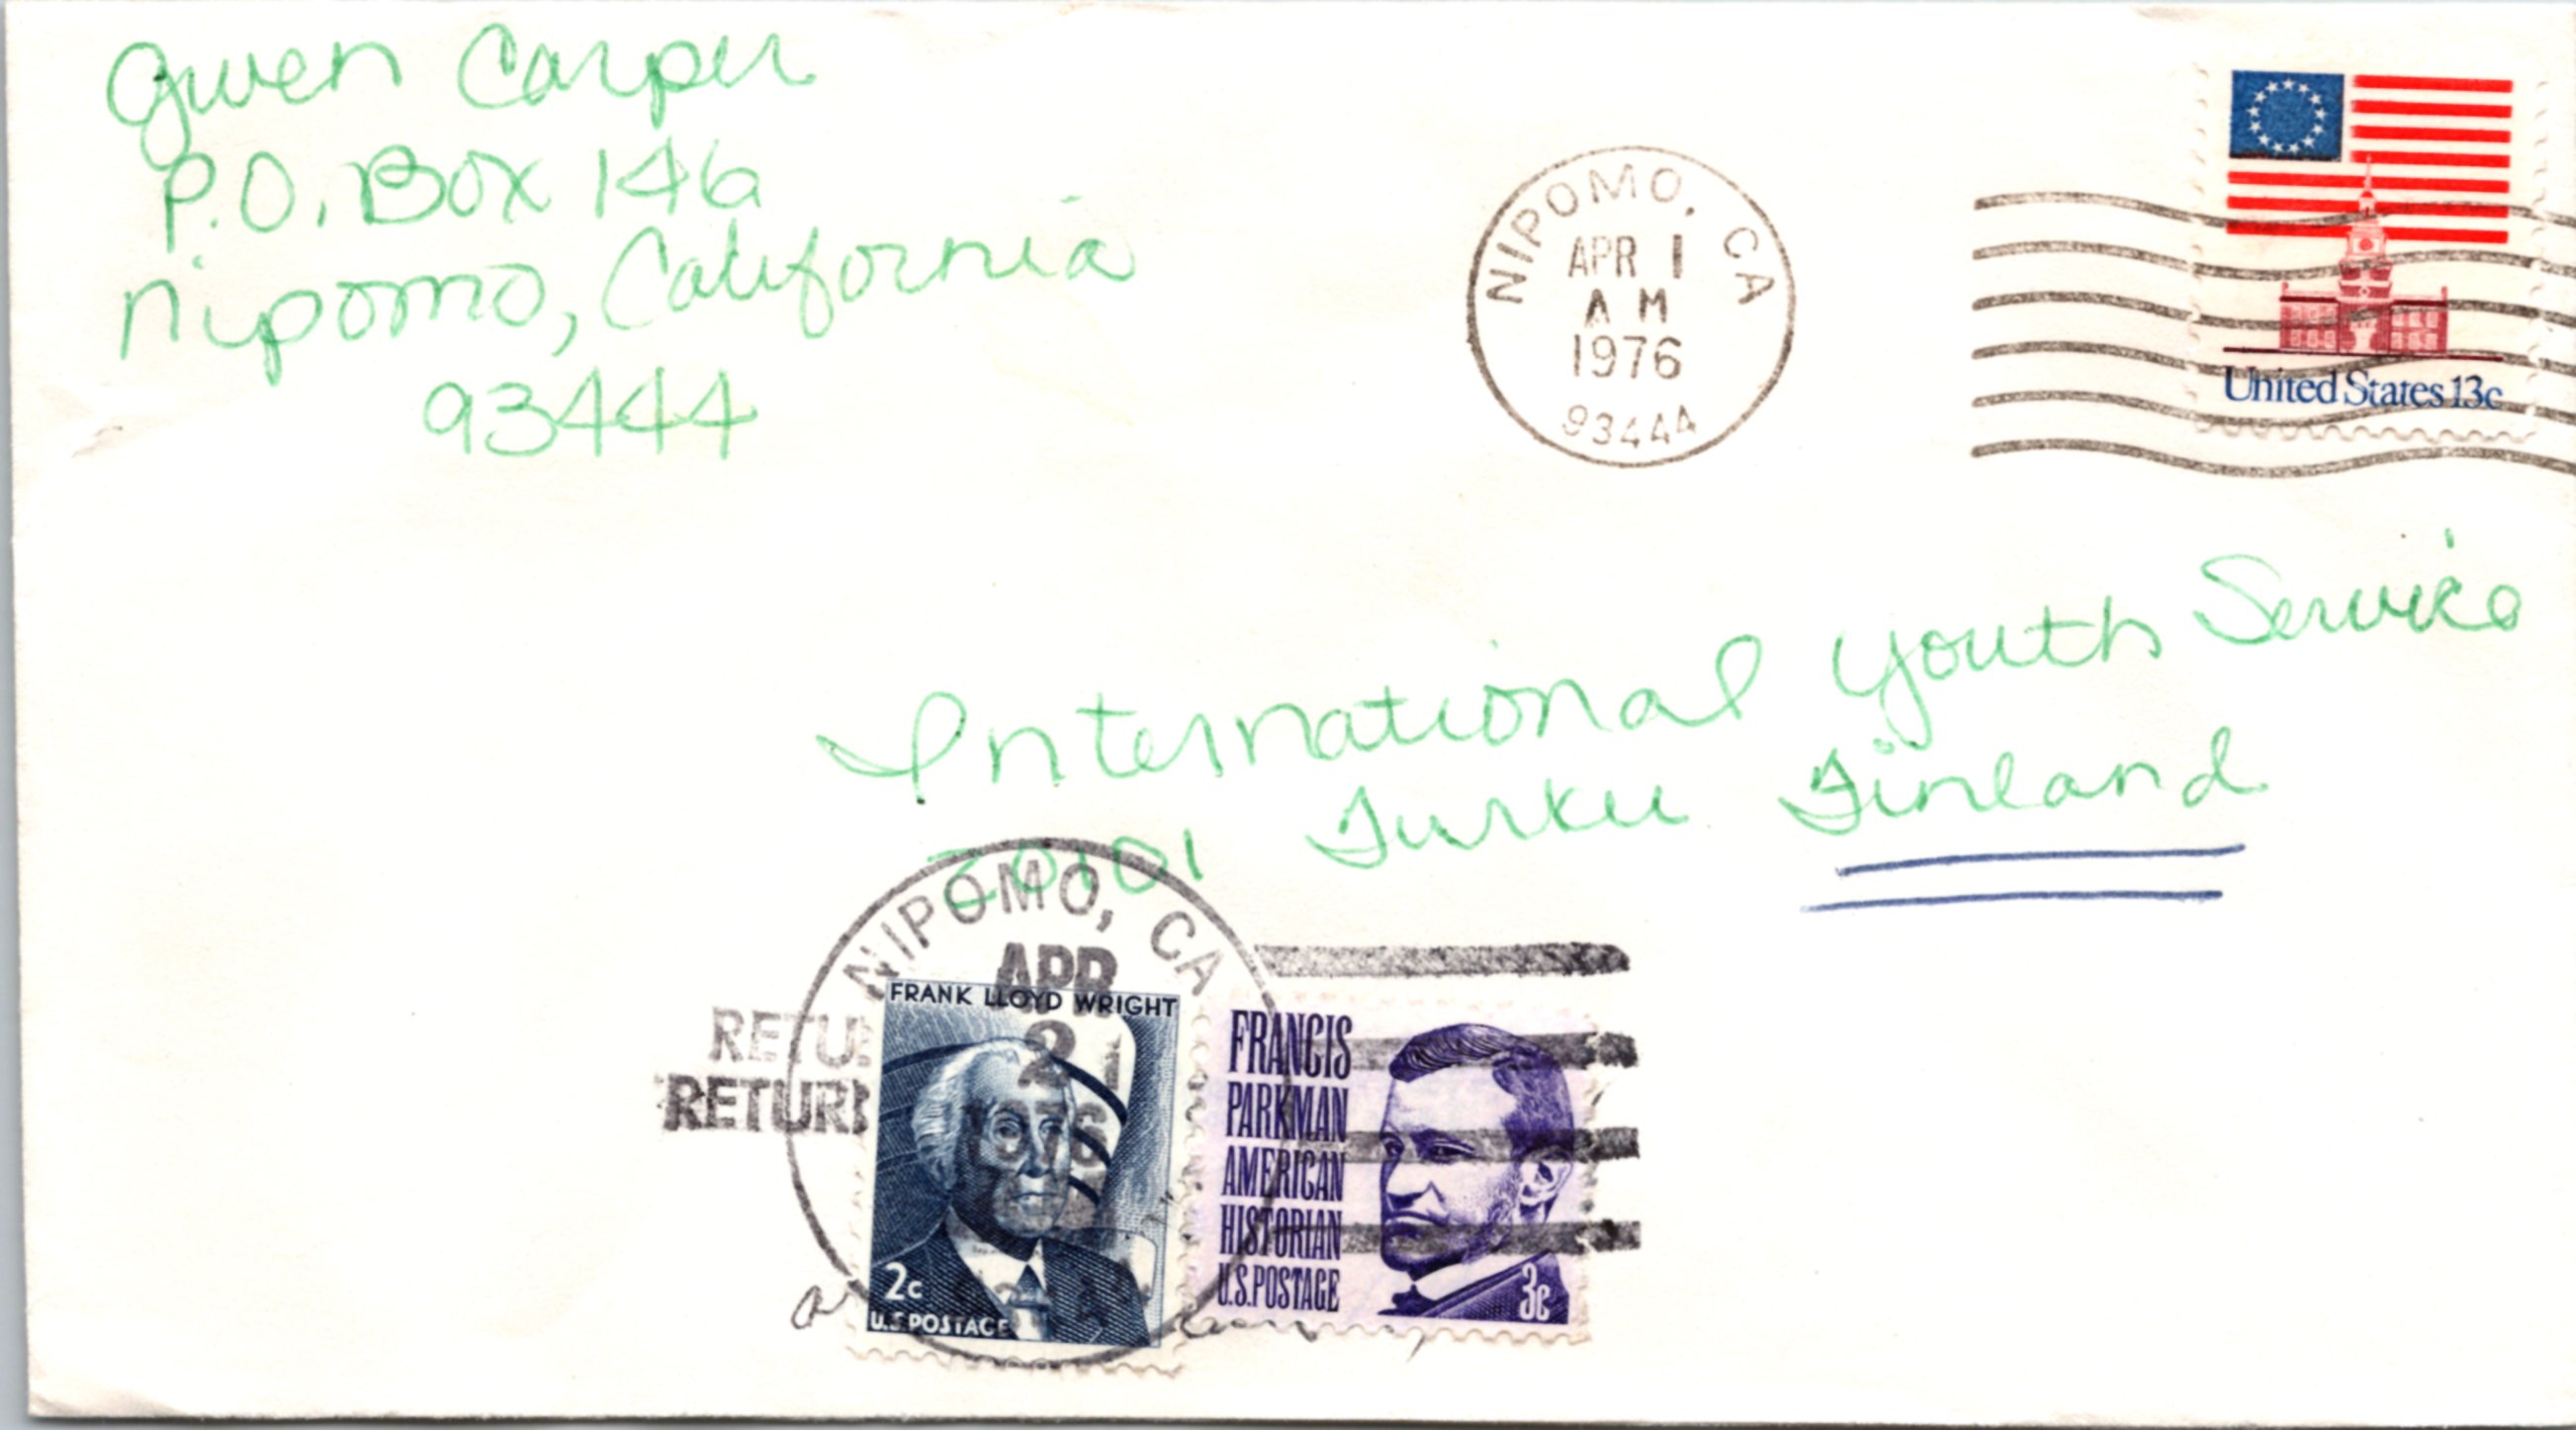 Gwen Carper
P.O. Box 146
Nipomo, California
93444
NIPOMO, CA
APR 1
AM
1976
93444
United States 13c
International Youth Service
20101 Turku Finland
NIPOMO, CA
APR
2
1976
RETU
RETURN
FRANK LLOYD WRIGHT
2c
U.S. POSTAGE
FRANCIS
PARKMAN
AMERICAN
HISTORIAN
U.S. POSTAGE
3c